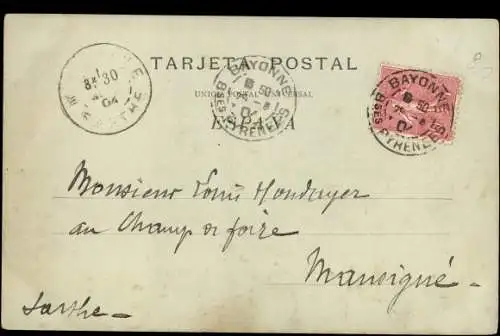 TARJETA POSTAL
UNION POSTAL UNIVERSAL
ESPAÑA
BAYONNE
BSES PYRENEES
BAYONNE
BSES PYRENEES
8 30
04
SARTHE
Monsieur Louis
au Champ de foire
Mansigné.
Sarthe